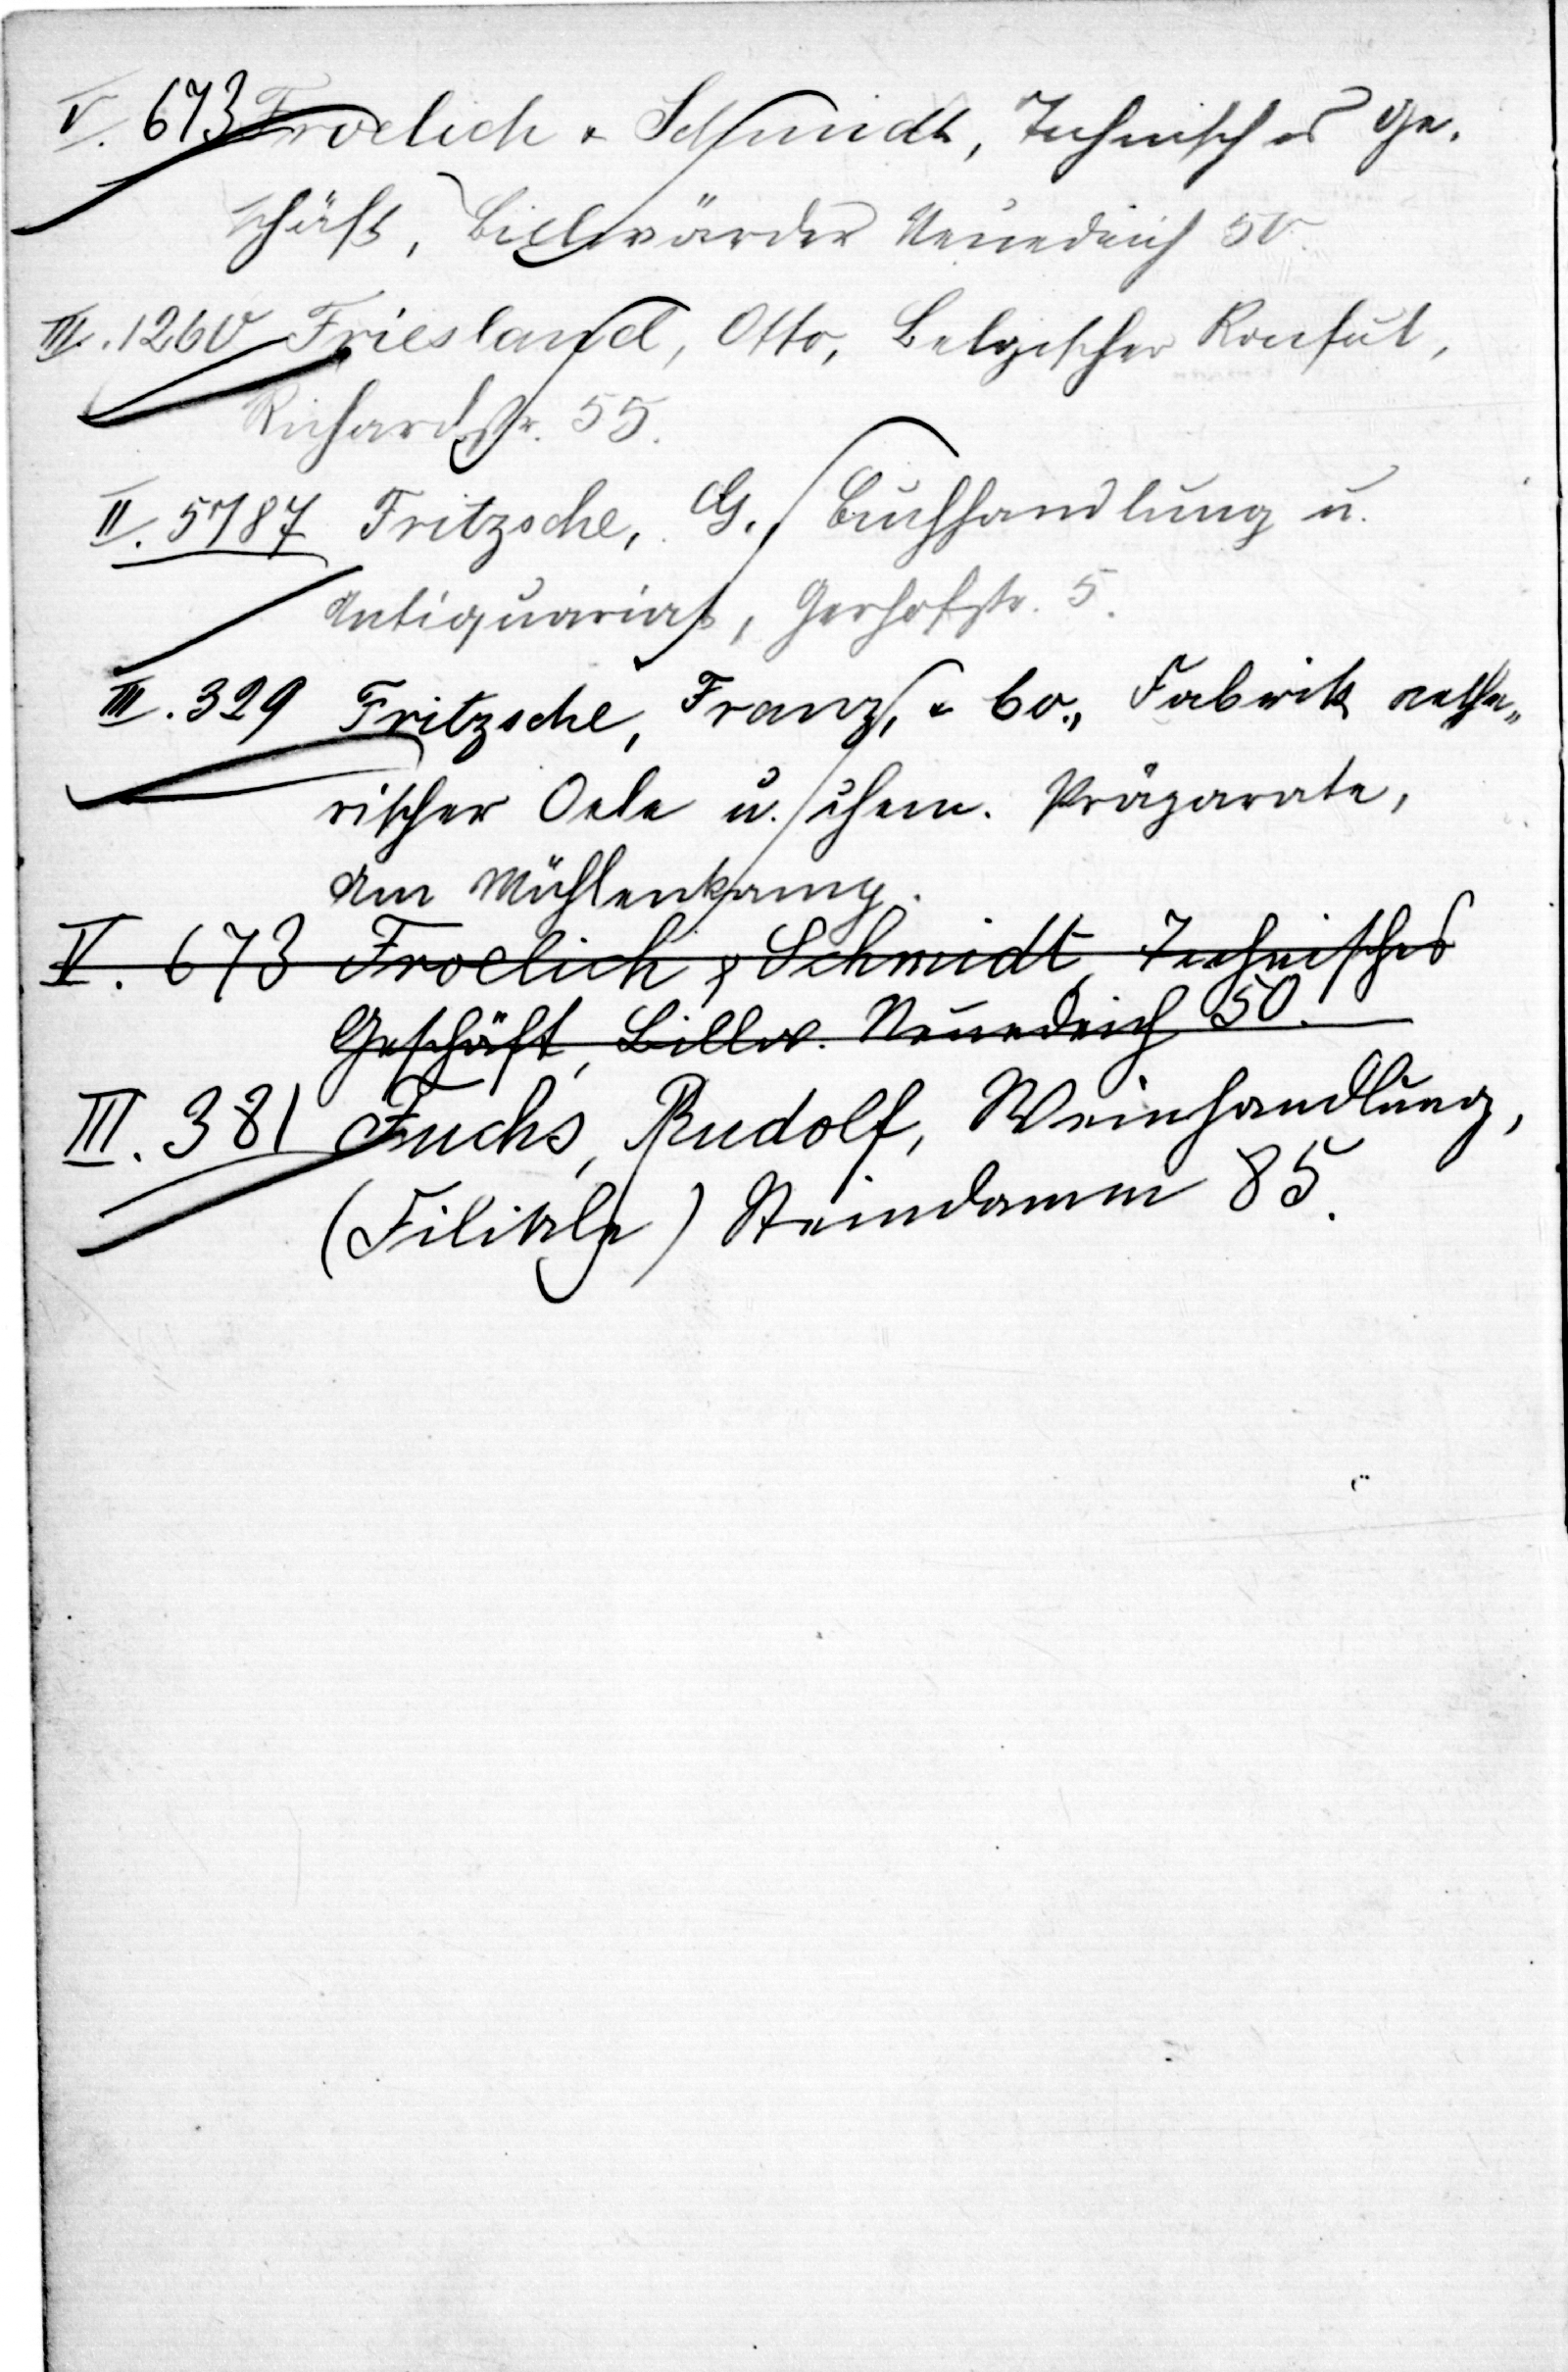 V. 673 Froelich & Schmidt, Technisches Ge-
schäft, Billwärder Neuedeich 50.
III. 1260 Friesland, Otto, Belgischer Konsul,
Richardstr. 55.
II. 5787 Fritzsche, G., Buchhandlung u.
Antiquariat, Gerhofstr. 5.
III. 329 Fritzsche, Franz, & Co., Fabrik aethe-
rischer Oele u. chem. Präparate,
Am Mühlenkamp.
V. 673 Froelich & Schmidt, Technisches
Geschäft, Billw. Neuedeich 50.
III. 381 Fuchs, Rudolf, Weinhandlung,
(Filiale) Steindamm 85.